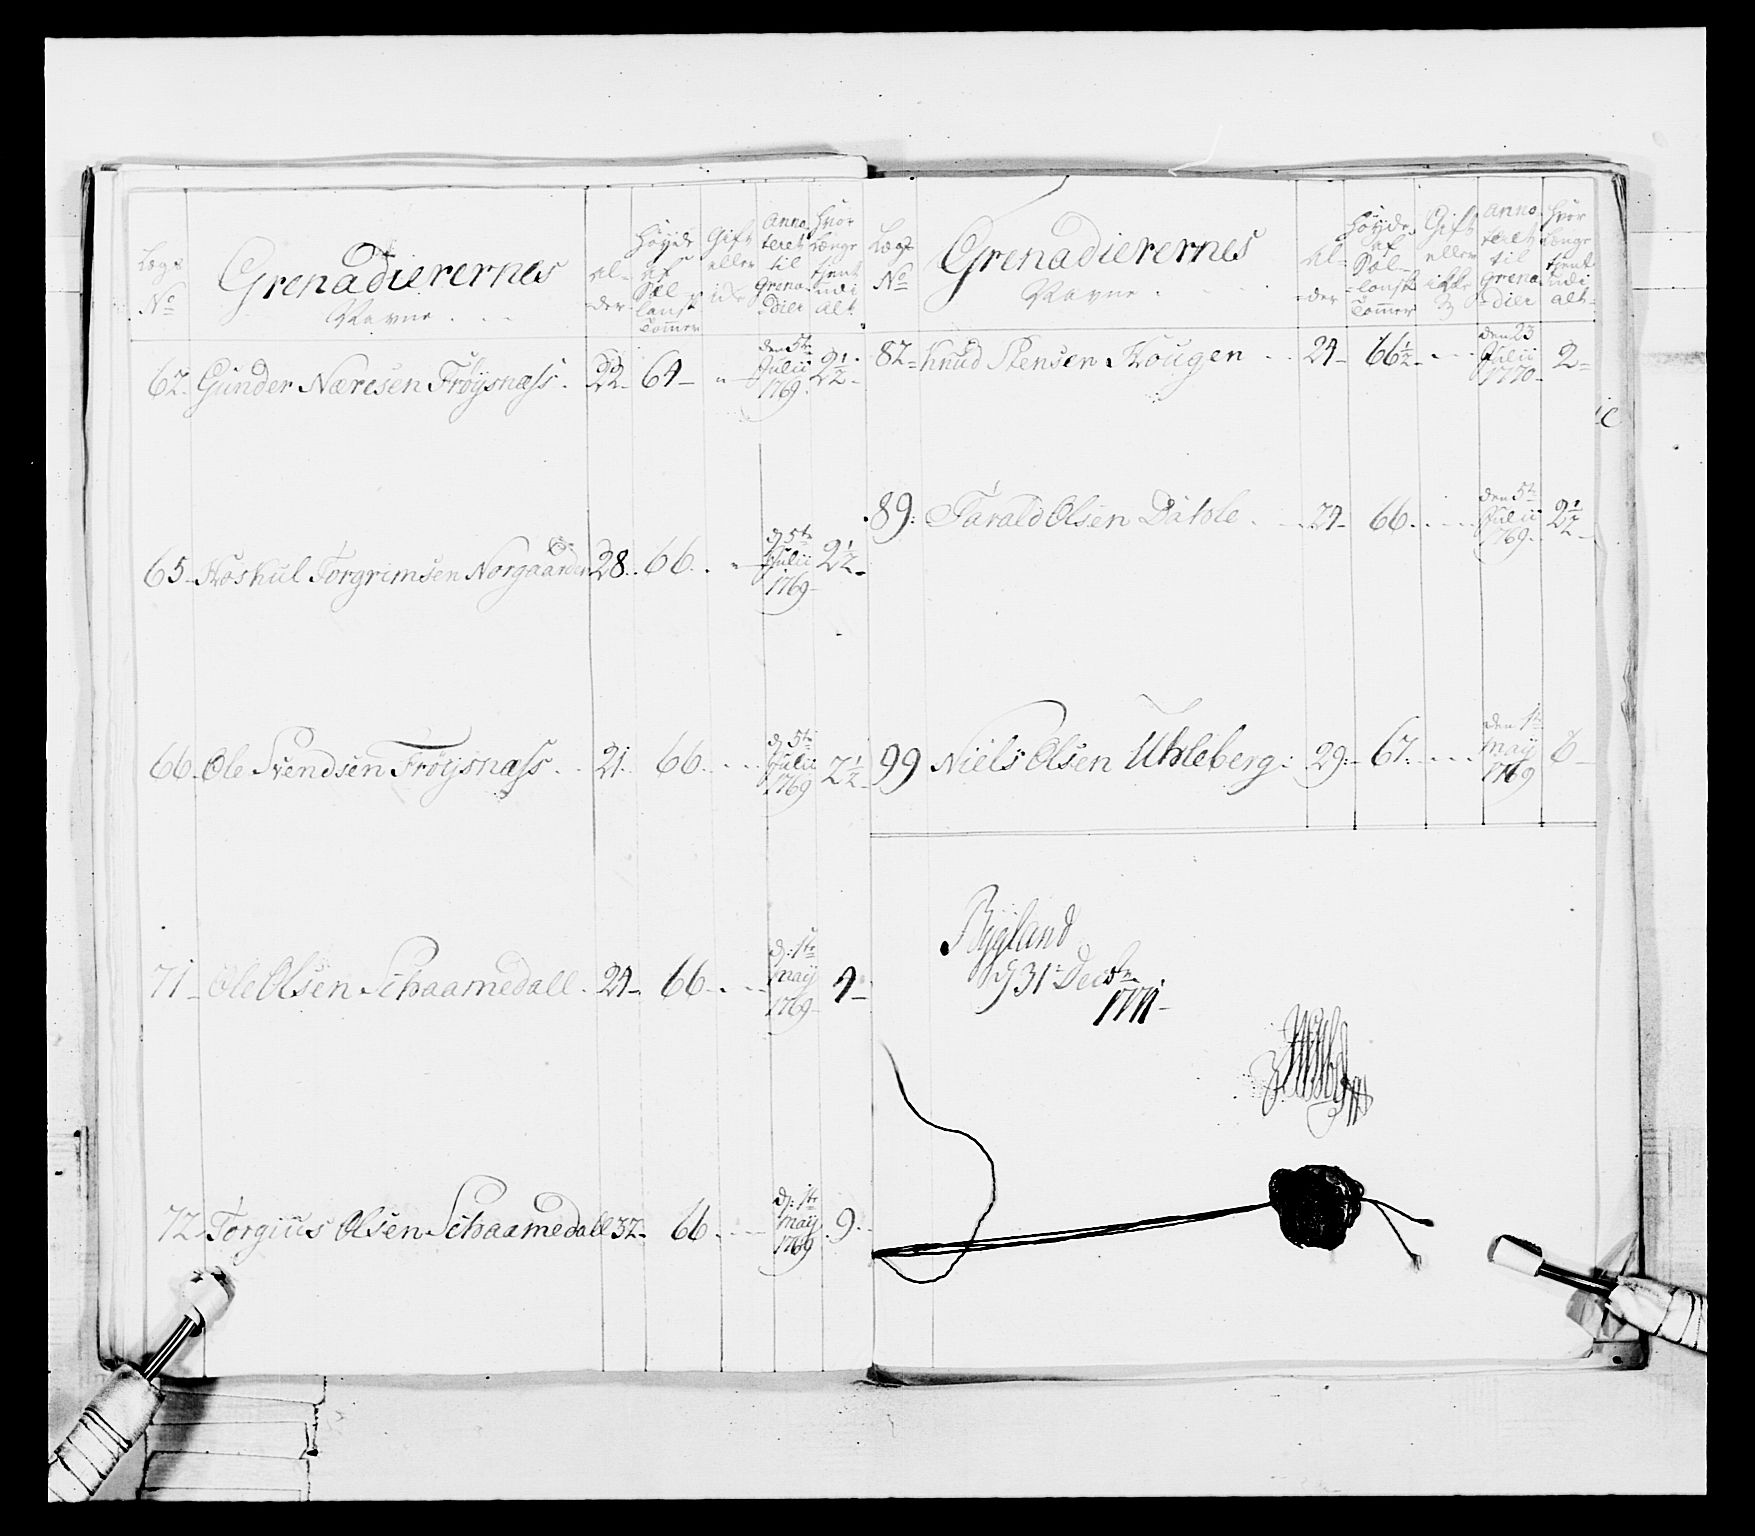 Lægs No
Grenadierernes
Navne
Al-
der
Höyde
af
Saal
Tommer
Gift
eller
ikke
Anno
teret
til
Grena-
dier
Hvor
længe
tient
udi
alt
62 Gunder Næresen Fröysnæss 22 64 den 5te Julii 1769 2 1/2
65 Torgrimsen Norgaarden 28 66 d 5te Julii 1769 2 1/2
66 Ole Svendsen Fröysnæss 21 66 d 5te Julii 1769 2 1/2
71 Ole Olsen Schaamedall 24 66 d: 1te May 1769
72 Torgiüs Olsen Schaamedall 32 66 d: 1te May 1769 9
Lægs No
Grenadierernes
Navne
Al-
der
Höyde
af
Saal
Tommer
Gift
eller
ikke
Anno
teret
til
Grena
dier
Hvor
længe
tient
udi
alt
82 Knüd Stensen Hougen 24 66 1/2 den 23 Julii 1770 2
89 Tarald Olsen 24 66 den 5te Julii 1769 2 1/2
99 Niels Olsen Uhleberg 29 67 den 1te May 1769 6
Bygland
d 31te Decbr
1771